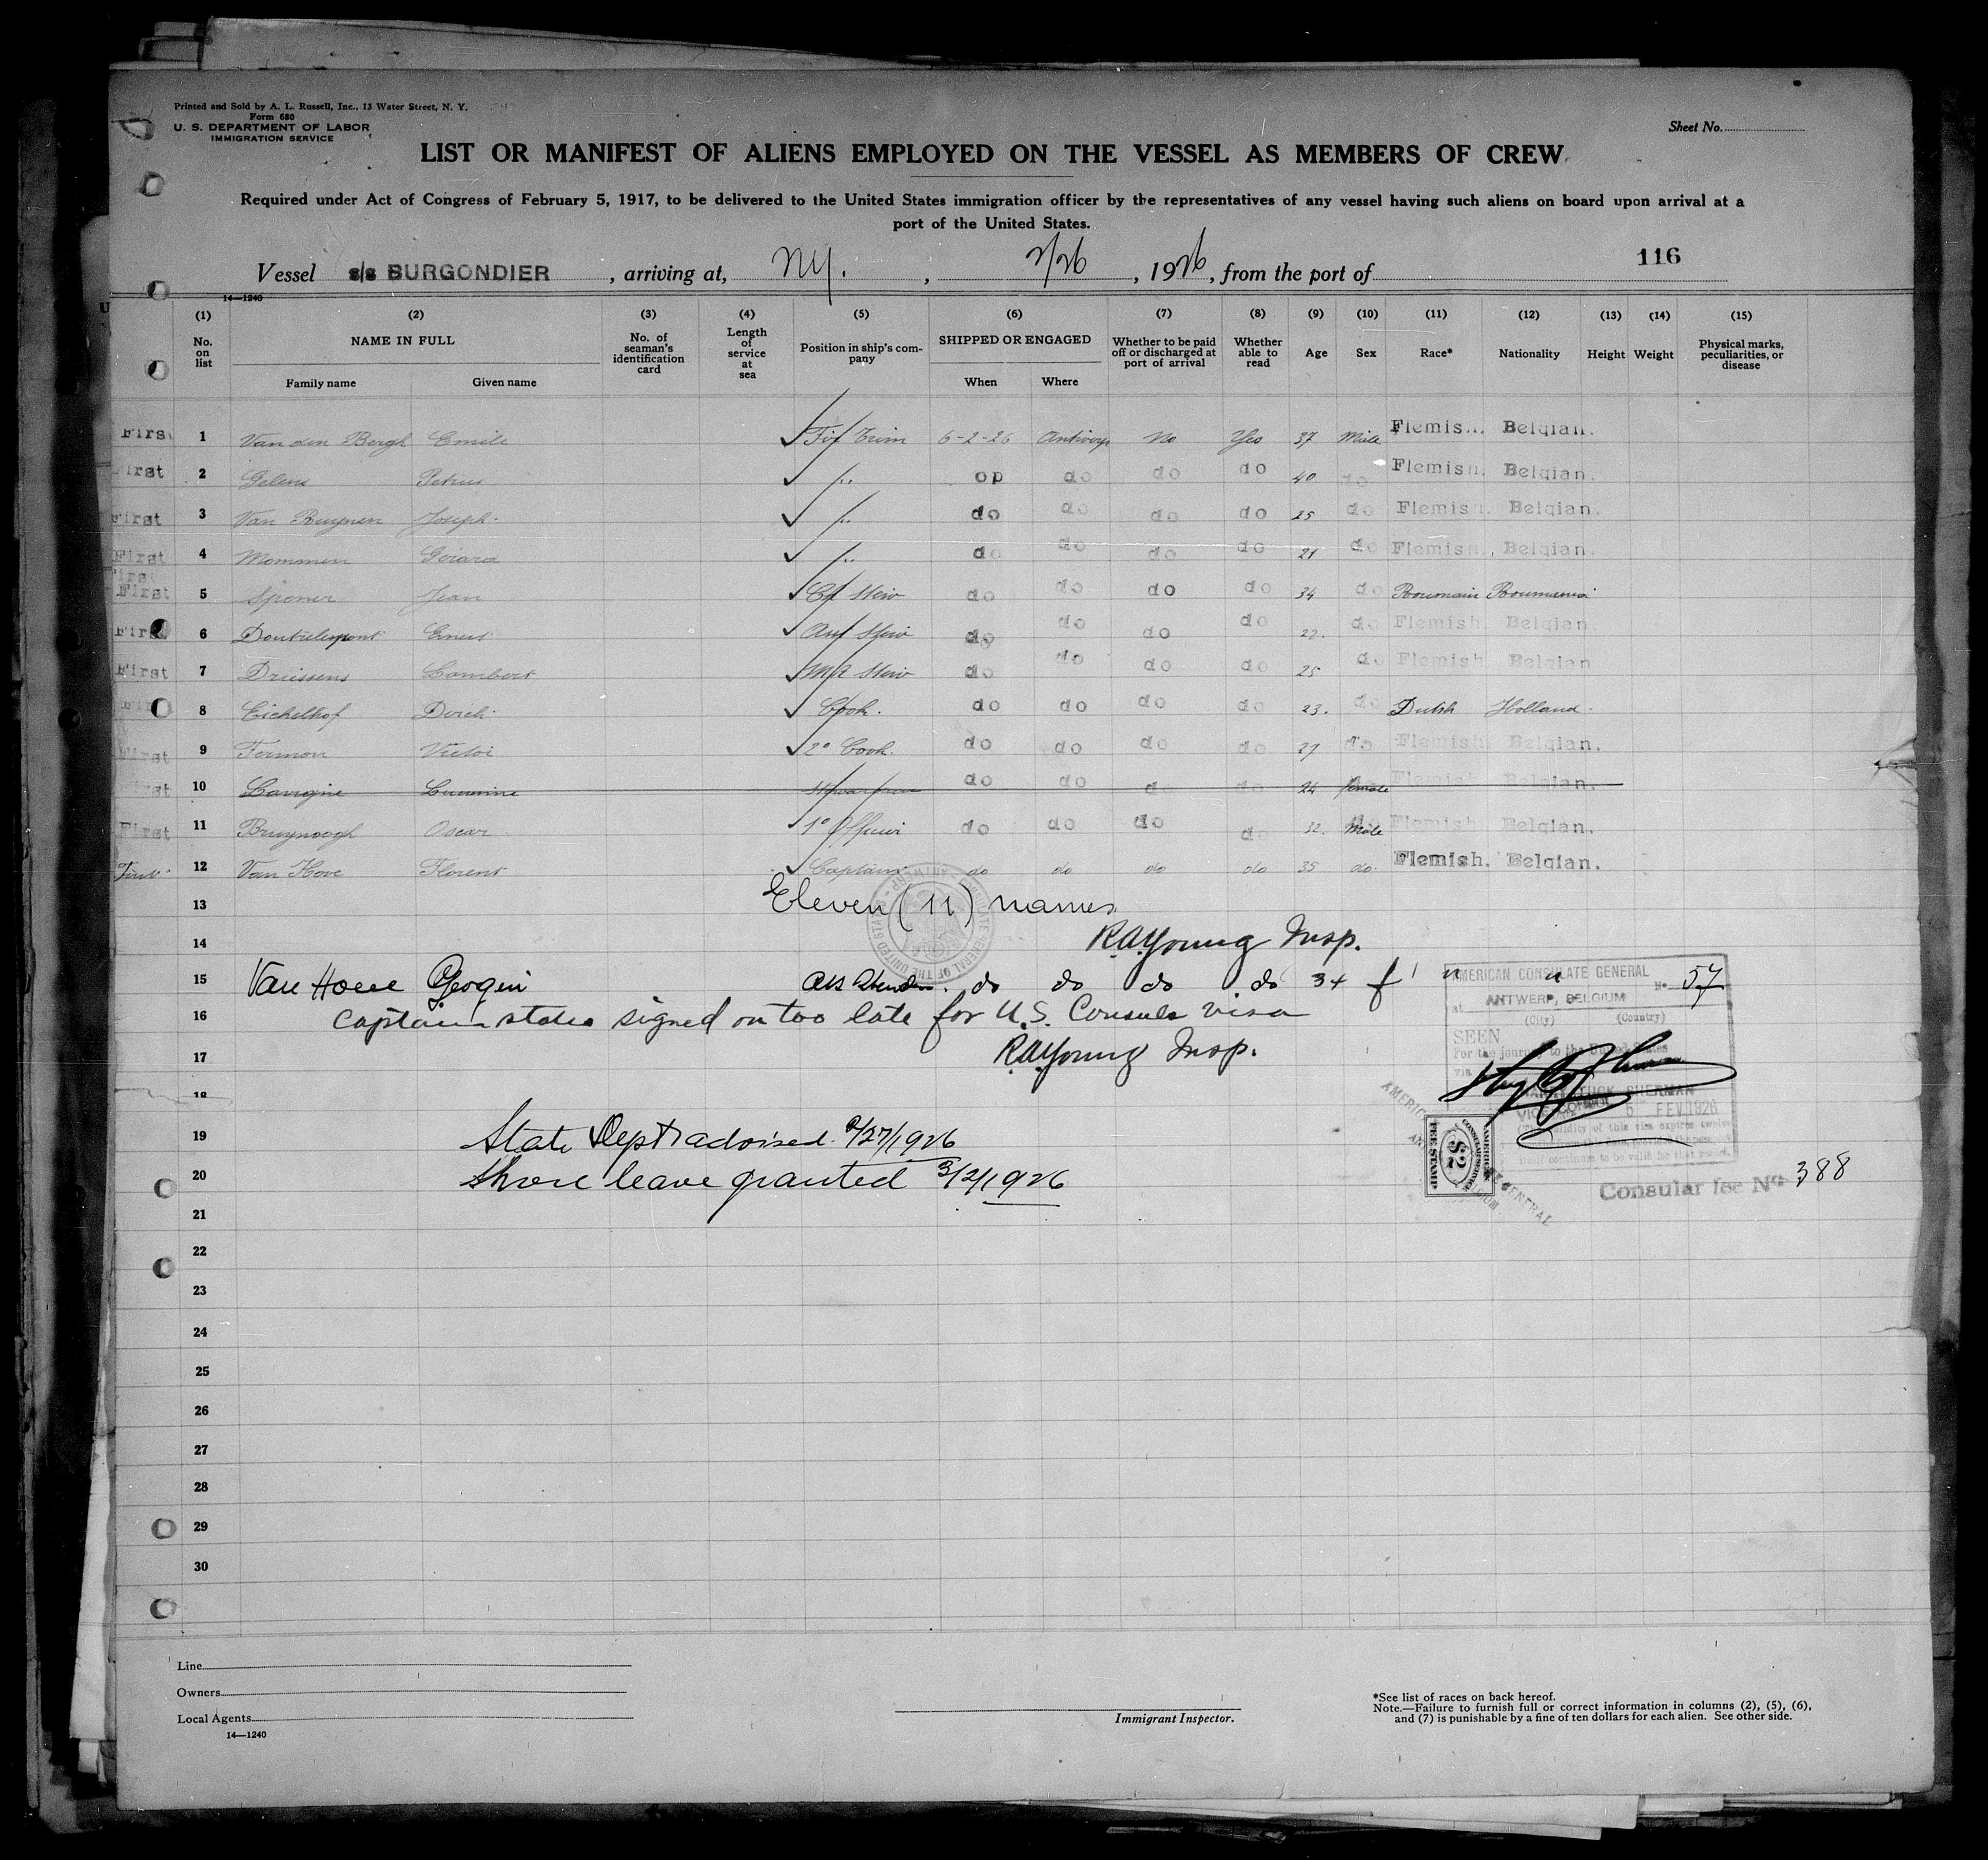 Printed and Sold by A. L. Russell, Inc., 13 Water Street, N. Y.
Form 680
U. S. DEPARTMENT OF LABOR
IMMIGRATION SERVICE
Sheet No.
LIST OR MANIFEST OF ALIENS EMPLOYED ON THE VESSEL AS MEMBERS OF CREW
Required under Act of Congress of February 5, 1917, to be delivered to the United States immigration officer by the representatives of any vessel having such aliens on board upon arrival at a
port of the United States.
116
Vessel s/s BURGONDIER, arriving at, NY., 2/26, 1926, from the port of
14—1240
(1) (2) (3) (4) (5) (6) (7) (8) (9) (10) (11) (12) (13) (14) (15)
No. on list NAME IN FULL Family name Given name No. of seaman's identification card Length of service at sea Position in ship's company SHIPPED OR ENGAGED When Where Whether to be paid off or discharged at port of arrival Whether able to read Age Sex Race* Nationality Height Weight Physical marks, peculiarities, or disease
First 1 Van den Bergh Emile Trim 6-2-26 Antwerp No Yes 37 Male Flemish. Belgian.
First 2 Gelens Petrus " op do do do 40 do Flemish. Belgian.
First 3 Van Ruynen Joseph. " do do do do 25 do Flemish. Belgian.
First 4 Mommen Gerard " do do do do 21 do Flemish. Belgian.
First 5 Sponer Jean Ch Stew do do do do 34 do Roumain Roumania
First 6 Doutrelepont Ernest Stew do do do do 22. do Flemish. Belgian.
First 7 Driessens Lambert Stew do do do do 25 do Flemish Belgian
8 Eichelhof Derck. Cook. do do do do 23. do Dutch Holland.
First 9 Fermon Victor 2° Cook. do do do do 27 do Flemish Belgian.
First 10 do do do do 24 female Flemish Belgian.
First 11 Bruynoogh Oscar 1° Officer do do do do 32. Male Flemish Belgian.
First 12 Van Hove Florent Captain do do do do 35 do. Flemish. Belgian.
13 Eleven (11) names
14 R.A. Young Insp.
15 Van Hove Georgin do do do do 34 f " "
16 Captain states signed on too late for U.S. Consuls visa
17 R.A. Young Insp.
18
19 State Dept advised 2/27/1926
20 Shore leave granted 3/2/1926
21
22
23
24
25
26
27
28
29
30
AMERICAN CONSULATE GENERAL
No. 57
at ANTWERP, BELGIUM
(City) (Country)
SEEN
For the journey to the United States
via
SHERMAN
VICE CONSUL
6 FEV 1926
AMERICAN
CONSULAR SERVICE
$2
FEE STAMP
Consular fee No 388
Line
Owners
Local Agents
14—1240
Immigrant Inspector.
*See list of races on back hereof.
Note.—Failure to furnish full or correct information in columns (2), (5), (6),
and (7) is punishable by a fine of ten dollars for each alien. See other side.